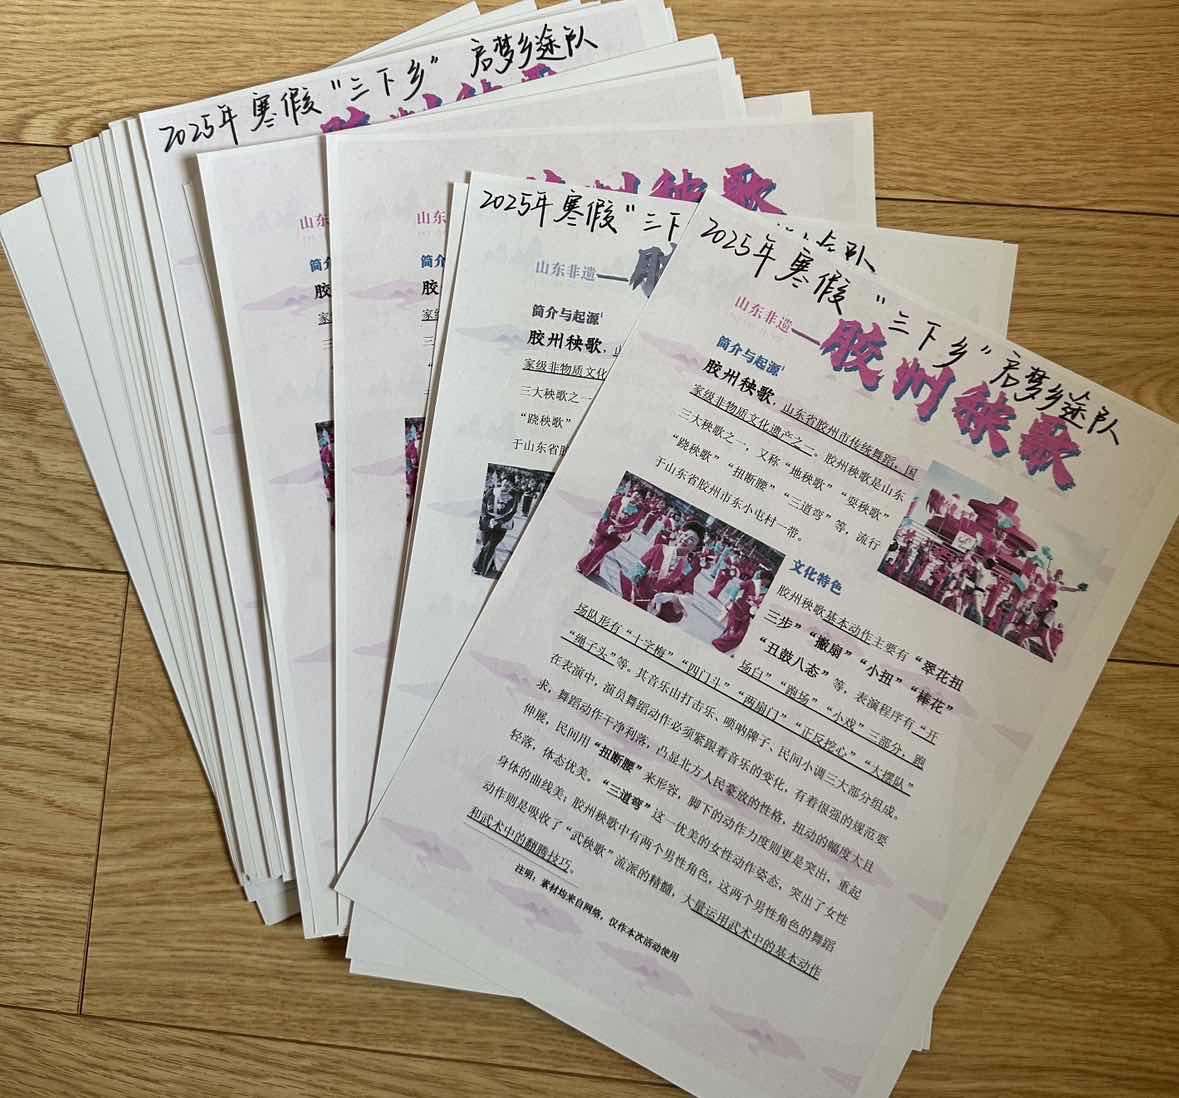 2025年寒假"三下乡" 启梦乡途队
山东
简介
胶
家级
山东
简介
胶
家级
胶州秧歌
2025年寒假"三下
山东非遗—胶
简介与起源
胶州秧歌，山
家级非物质文化
三大秧歌之一
"跷秧歌"
于山东省胶
2025年寒假"三下乡"启梦乡途队
山东非遗—胶州秧歌
简介与起源
胶州秧歌，山东省胶州市传统舞蹈，国
家级非物质文化遗产之一。胶州秧歌是山东
三大秧歌之一，又称"地秧歌""耍秧歌"
"跷秧歌""扭断腰""三道弯"等，流行
于山东省胶州市东小屯村一带。
文化特色
胶州秧歌基本动作主要有"翠花扭
三步""撇扇""小扭""棒花"
"丑鼓八态"等，表演程序有"开
场白""跑场""小戏"三部分，跑
场队形有"十字梅""四门斗""两扇门""正反挖心""大摆队"
"绳子头"等。其音乐由打击乐、唢呐牌子、民间小调三大部分组成。
在表演中，演员舞蹈动作必须紧跟着音乐的变化，有着很强的规范要
求，舞蹈动作干净利落，凸显北方人民豪放的性格，扭动的幅度大且
伸展，民间用"扭断腰"来形容，脚下的动作力度则更是突出，重起
轻落，体态优美。"三道弯"这一优美的女性动作姿态，突出了女性
身体的曲线美；胶州秧歌中有两个男性角色，这两个男性角色的舞蹈
动作则是吸收了"武秧歌"流派的精髓，大量运用武术中的基本动作
和武术中的翻腾技巧。
注明：素材均来自网络，仅作本次活动使用